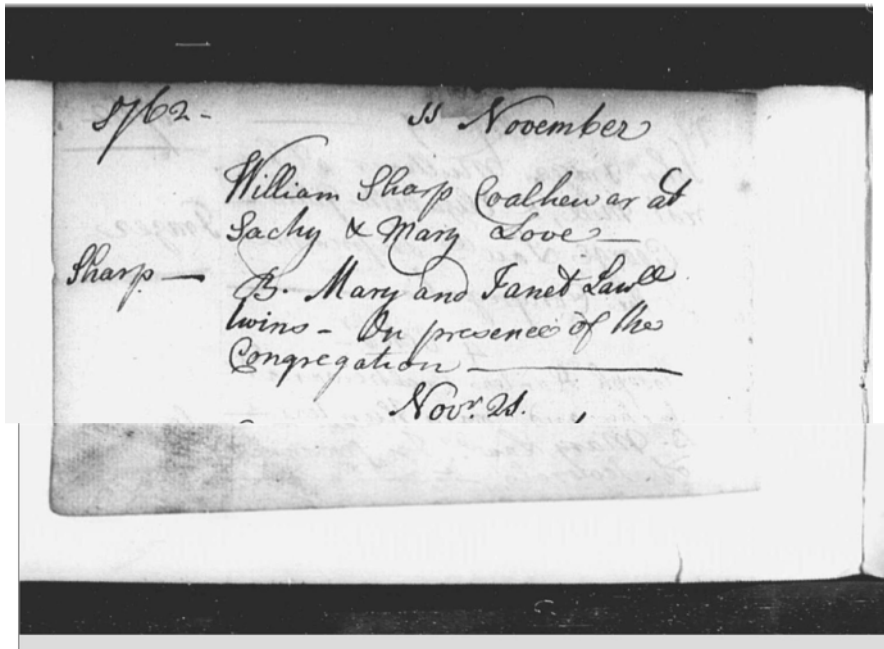 1762 - 11 November
William Sharp Coalhewar at
Sachy & Mary Love —
Sharp — B. Mary and Janet Lawll
twins - In presence of the
Congregation —
Novr. 21.